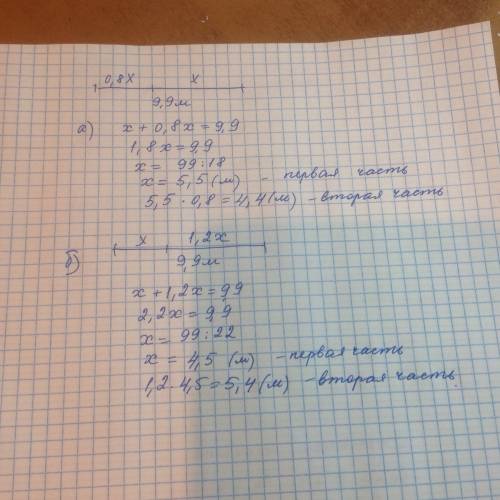 0,8x x
9,9м
а) x + 0,8x = 9,9
1,8x = 9,9
x = 99:18
x = 5,5 (м) - первая часть
5,5 · 0,8 = 4,4 (м) - вторая часть
x 1,2x
б) 9,9м
x + 1,2x = 9,9
2,2x = 9,9
x = 99:22
x = 4,5 (м) - первая часть
1,2 · 4,5 = 5,4 (м) - вторая часть